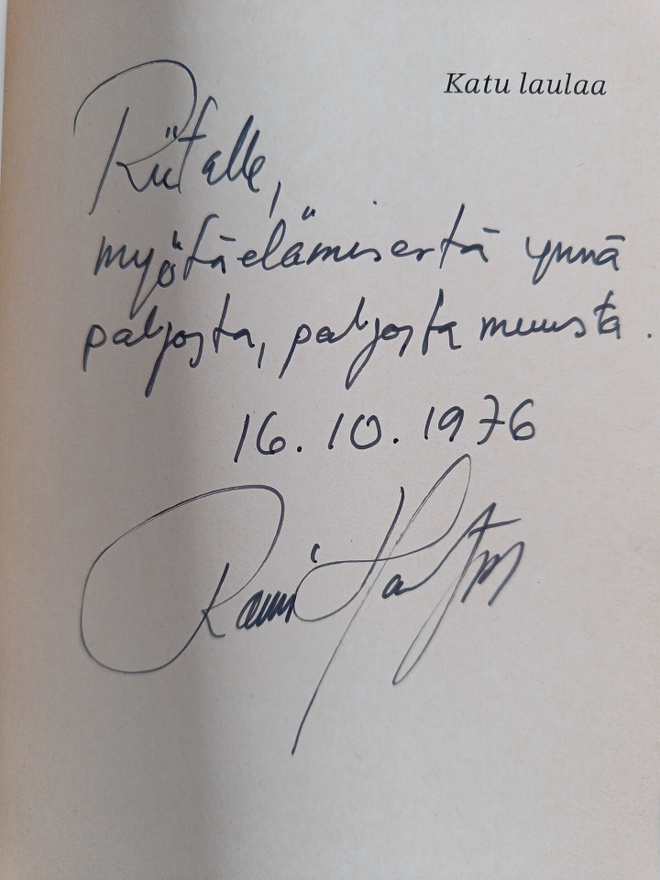 Katu laulaa
Riitalle,
myötäelämisestä ynnä
paljosta, paljosta muusta.
16.10.1976
Rauni